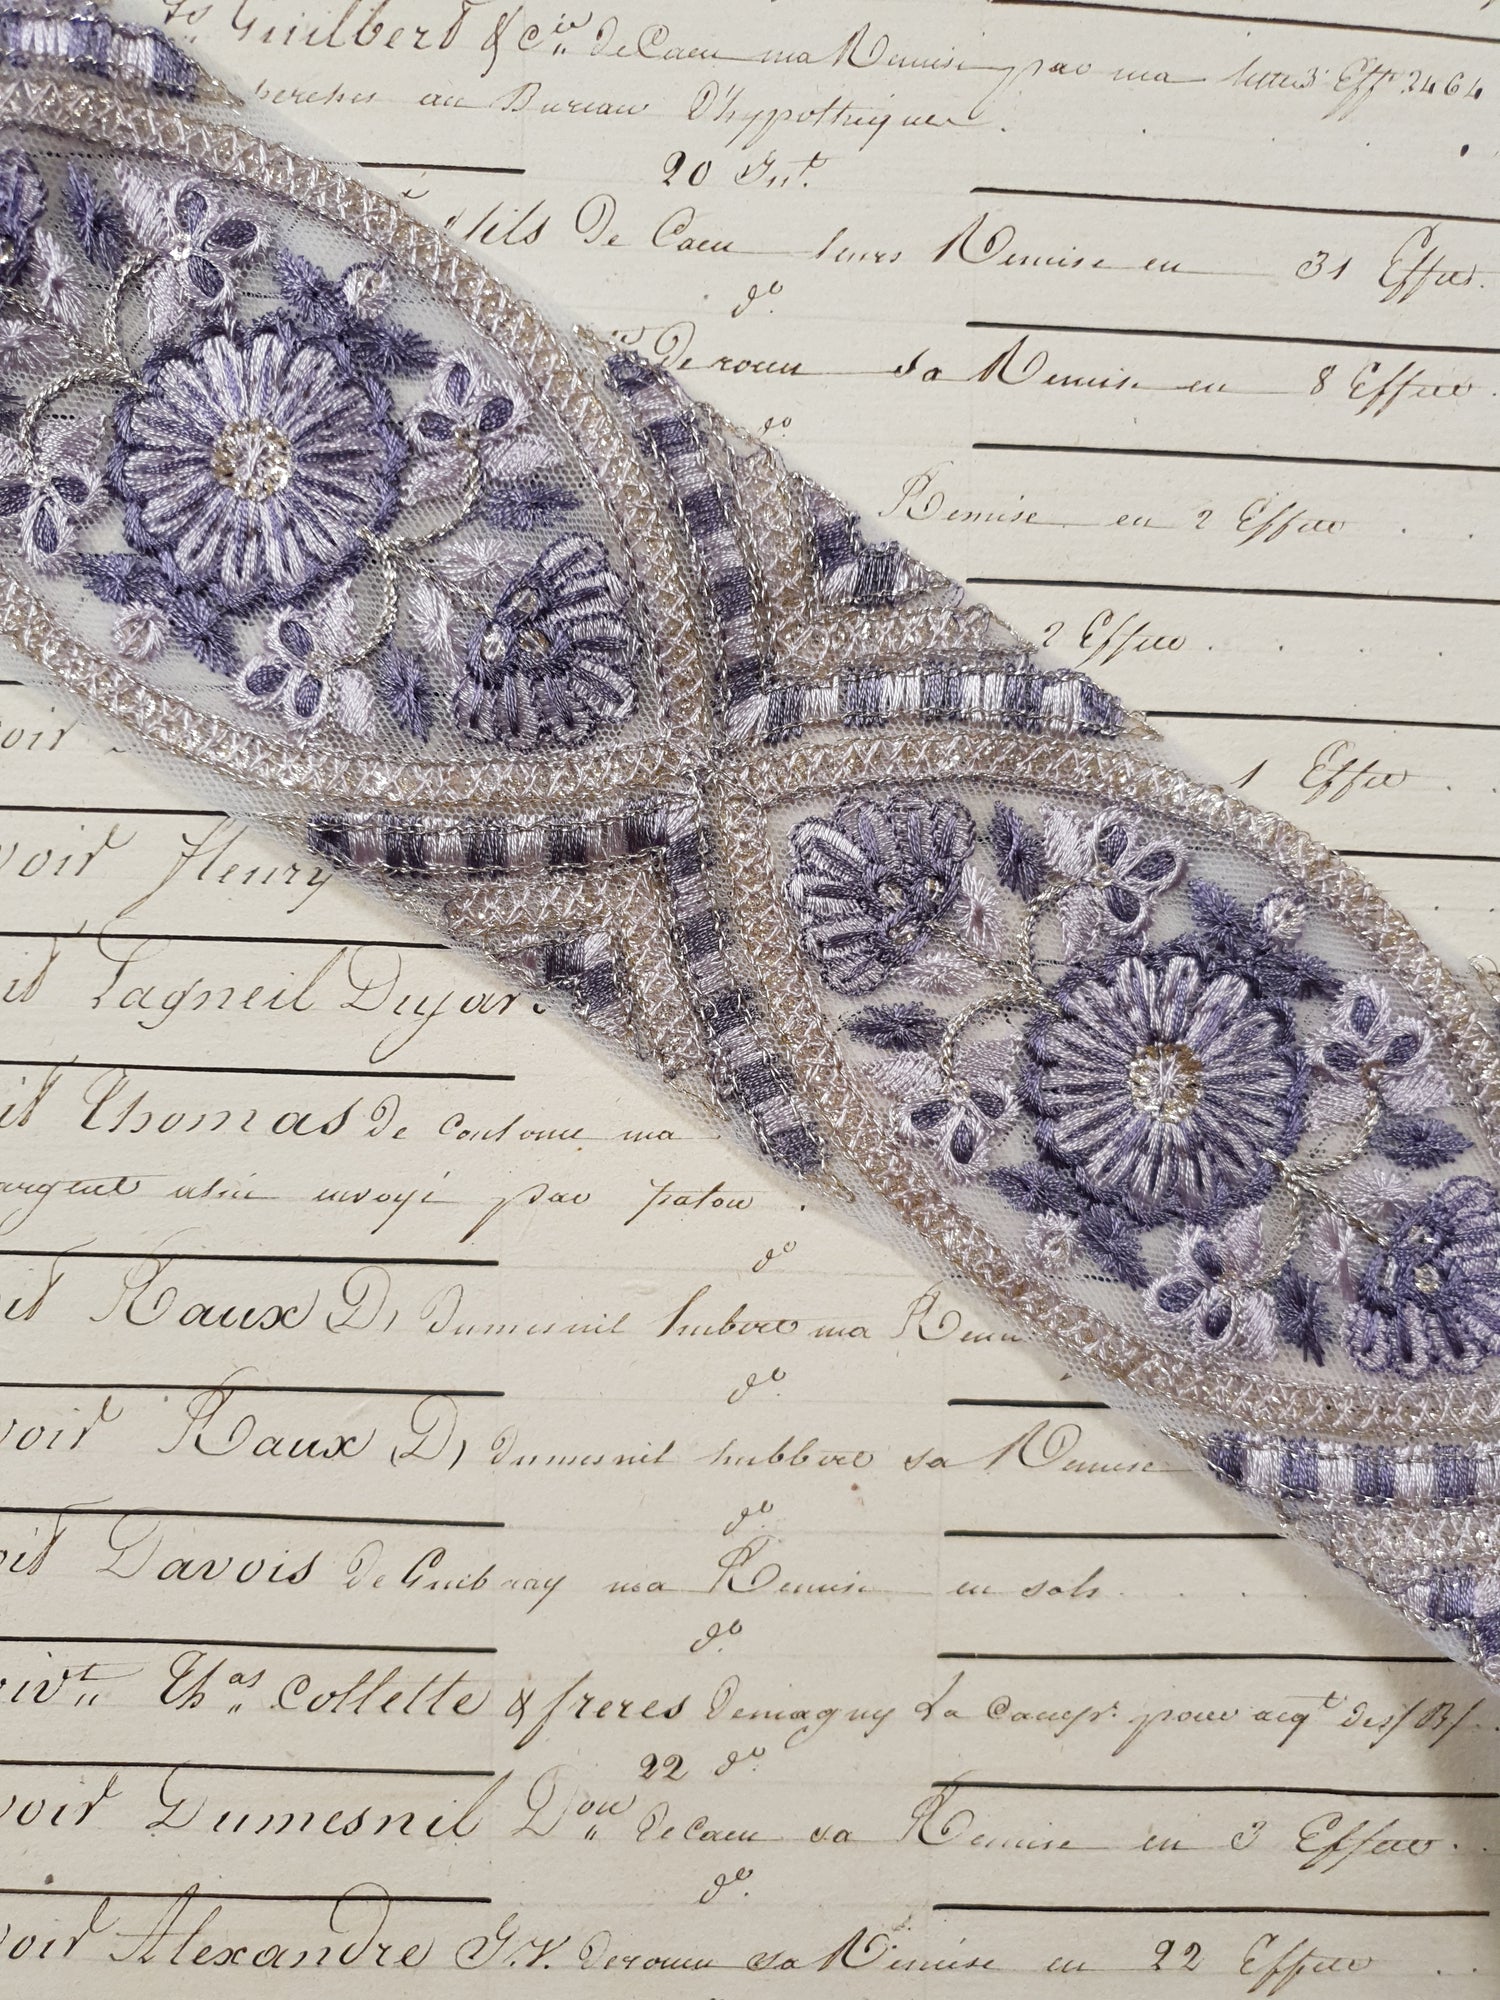 Guilbert & Cie de Caen ma Remise par ma lettre Eff. 2464
au Bureau D'hypothèques
20
fils De Caen leurs Remise en 31 Effets
do
De rouen sa Remise en 8 Effets
do
Remise en 2 Effets
2 Effets
1 Effet
voir
voir fleury
Lagneil Dujar
Thomas De ma
argent envoyé par
do
Raux D, Dumesnil hubert ma Remi
do
voir Raux D, Dumesnil hubbert sa Remise
do
Davois De Guibray ma Remise en sols
do
Thas Collette & freres Demagny La pour acqt des/B/
22 do
voir Dumesnil De Caen sa Remise en 3 Effets
do
voir Alexandre De rouen sa Remise en 22 Effets